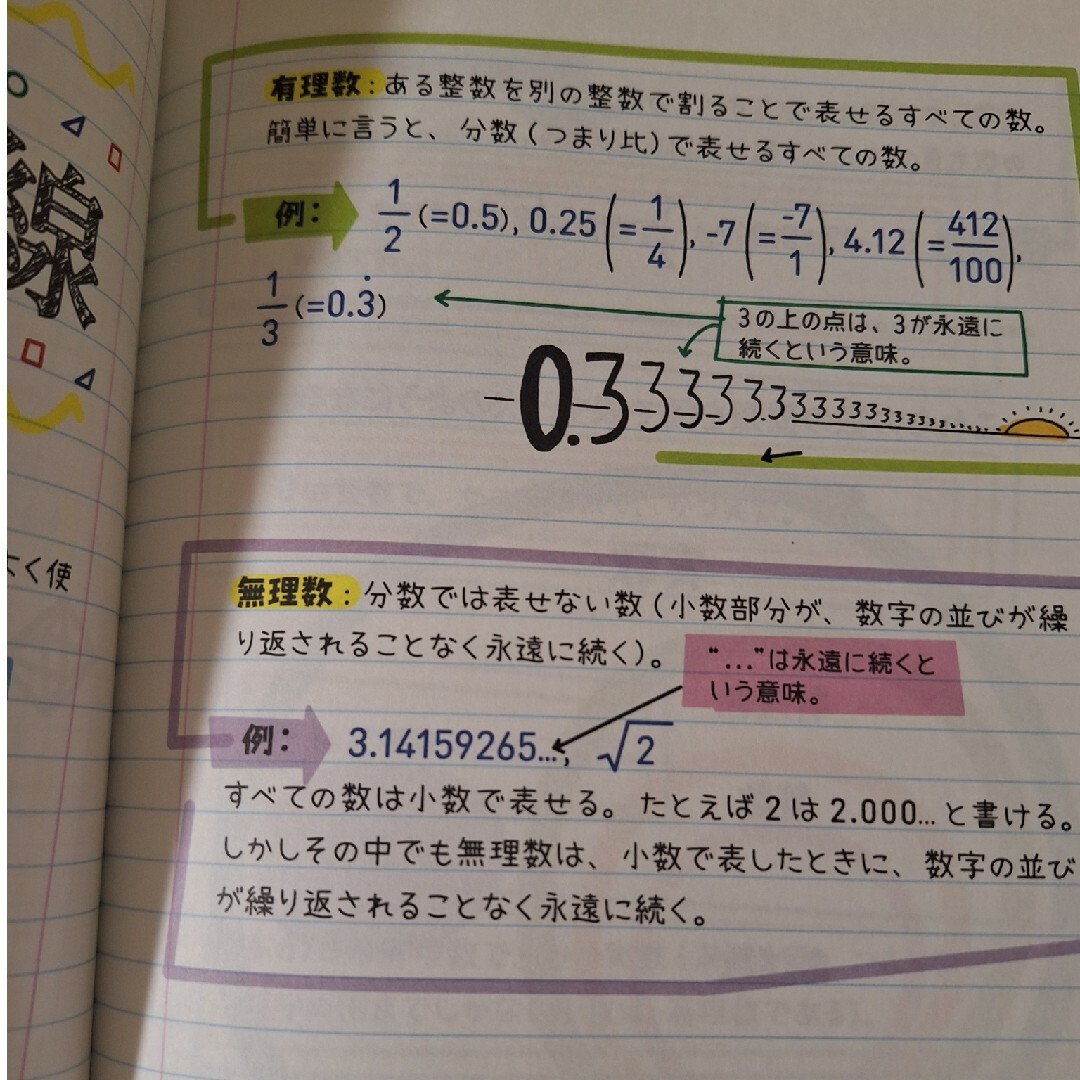 有理数：ある整数を別の整数で割ることで表せるすべての数。
簡単に言うと、分数（つまり比）で表せるすべての数。
例： 1/2 (=0.5), 0.25 (=1/4), -7 (=-7/1), 4.12 (=412/100),
1/3 (=0.3̇)
3の上の点は、3が永遠に
続くという意味。
0.333333333333333333
無理数：分数では表せない数（小数部分が、数字の並びが繰
り返されることなく永遠に続く）。
“…”は永遠に続くと
いう意味。
例： 3.14159265…, √2
すべての数は小数で表せる。たとえば2は2.000…と書ける。
しかしその中でも無理数は、小数で表したときに、数字の並び
が繰り返されることなく永遠に続く。
線
く使